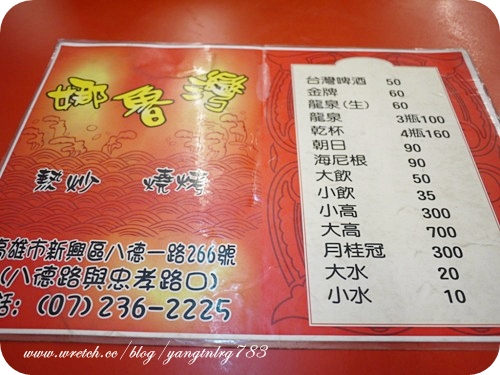 娜魯灣
熱炒 燒烤
高雄市新興區八德一路266號
(八德路與忠孝路口)
話: (07) 236-2225
台灣啤酒 50
金牌 60
龍泉(生) 60
龍泉 3瓶100
乾杯 4瓶160
朝日 90
海尼根 90
大飲 50
小飲 35
小高 300
大高 700
月桂冠 300
大水 20
小水 10
www.wretch.cc/blog/yangtnlrg783